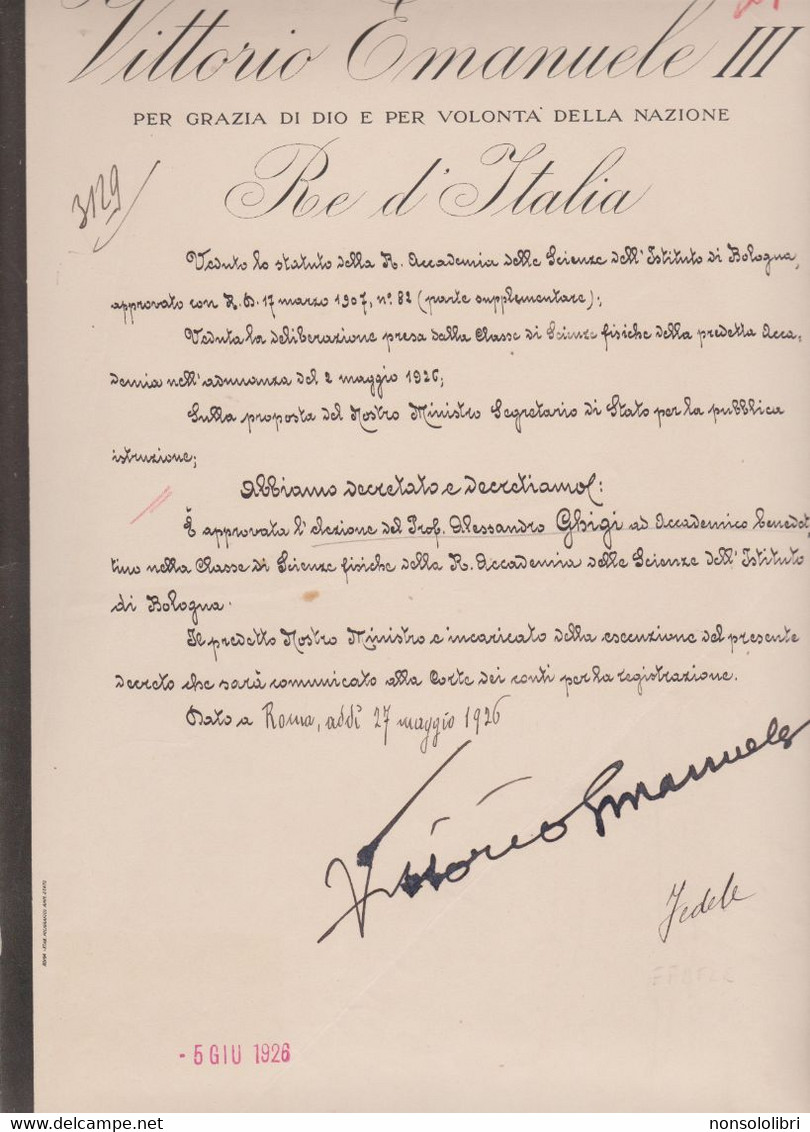 Vittorio Emanuele III
PER GRAZIA DI DIO E PER VOLONTA' DELLA NAZIONE
Re d'Italia
3129
Veduto lo statuto della R. Accademia delle Scienze dell'Istituto di Bologna,
approvato con R. D. 17 marzo 1907, n.º 82 (parte supplementare);
Veduta la deliberazione presa dalla Classe di Scienze fisiche della predetta Acca-
demia nell'adunanza del 2 maggio 1926;
Sulla proposta del Nostro Ministro Segretario di Stato per la pubblica
istruzione;
Abbiamo decretato e decretiamo:
È approvata l'elezione del Prof. Alessandro Ghigi ad Accademico benedet-
tino nella Classe di Scienze fisiche della R. Accademia delle Scienze dell'Istituto
di Bologna.
Il predetto Nostro Ministro e incaricato della esecuzione del presente
decreto che sarà comunicato alla Corte dei conti per la registrazione.
Dato a Roma, addì 27 maggio 1926
Vittorio Emanuele
Fedele
- 5 GIU 1926
delcampe.net
nonsololibri